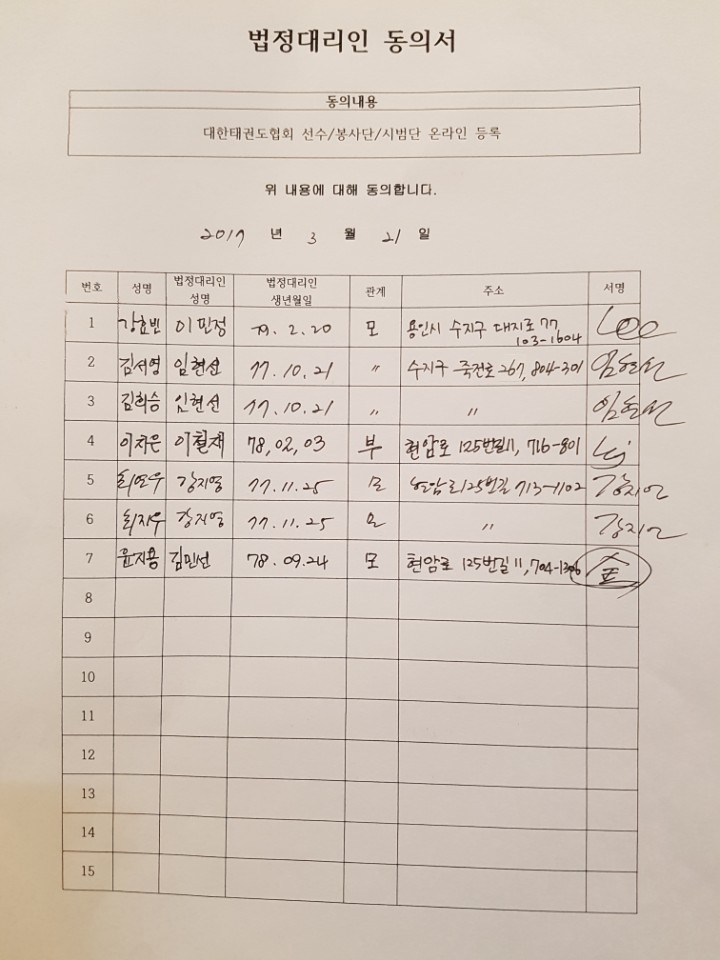 법정대리인 동의서
동의내용
대한태권도협회 선수/봉사단/시범단 온라인 등록
위 내용에 대해 동의합니다.
2019 년 3 월 21 일
번호 성명 법정대리인 성명 법정대리인 생년월일 관계 주소 서명
1 강효빈 이민정 79. 2. 20 모 용인시 수지구 대지로 77 103-1604 Lee
2 김서영 임현선 77. 10. 21 〃 수지구 죽전로 267, 804-301 임현선
3 김희승 임현선 77. 10. 21 〃 〃 임현선
4 이차은 이철재 78, 02, 03 부 현암로 125번길11, 716-801
5 최연우 강지영 77. 11. 25 모 현암로125번길 713-1102 강지영
6 최지우 강지영 77. 11. 25 모 〃 강지영
7 윤지용 김민선 78. 09. 24 모 현암로 125번길 11, 704-1306
8
9
10
11
12
13
14
15